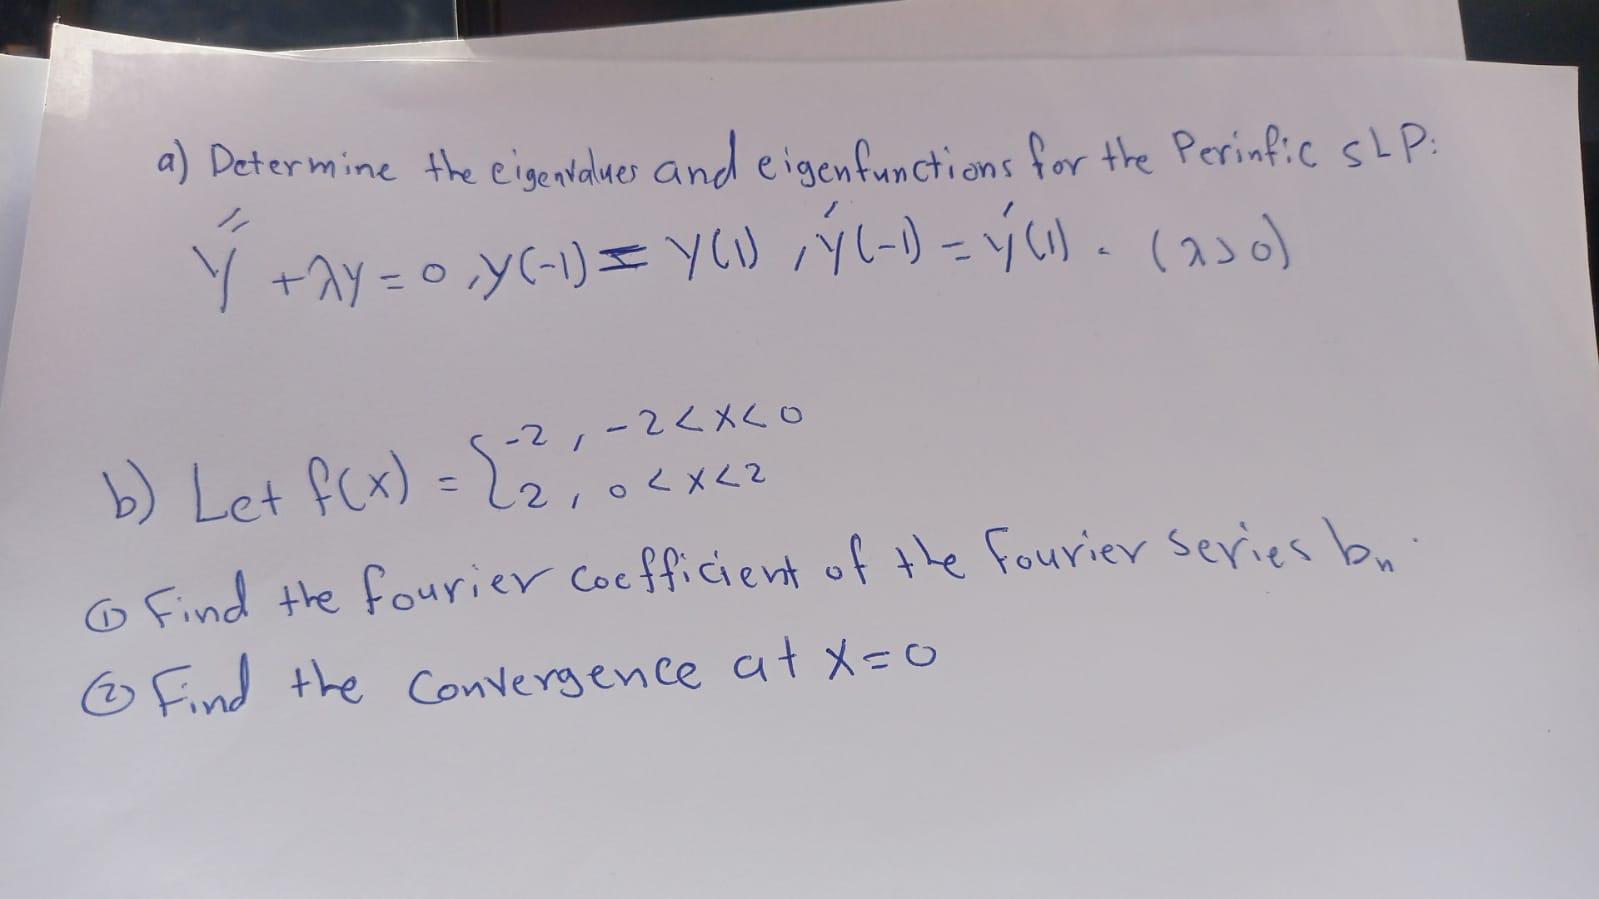 a) Determine the eigenvalues and eigenfunctions for the Perinfic SLP:
y'' + λy = 0, y(-1) = y(1), y'(-1) = y'(1). (λ>0)
b) Let f(x) = { -2, -2<x<0
2, 0<x<2
① Find the fourier coefficient of the Fourier Series bn.
② Find the Convergence at x=0